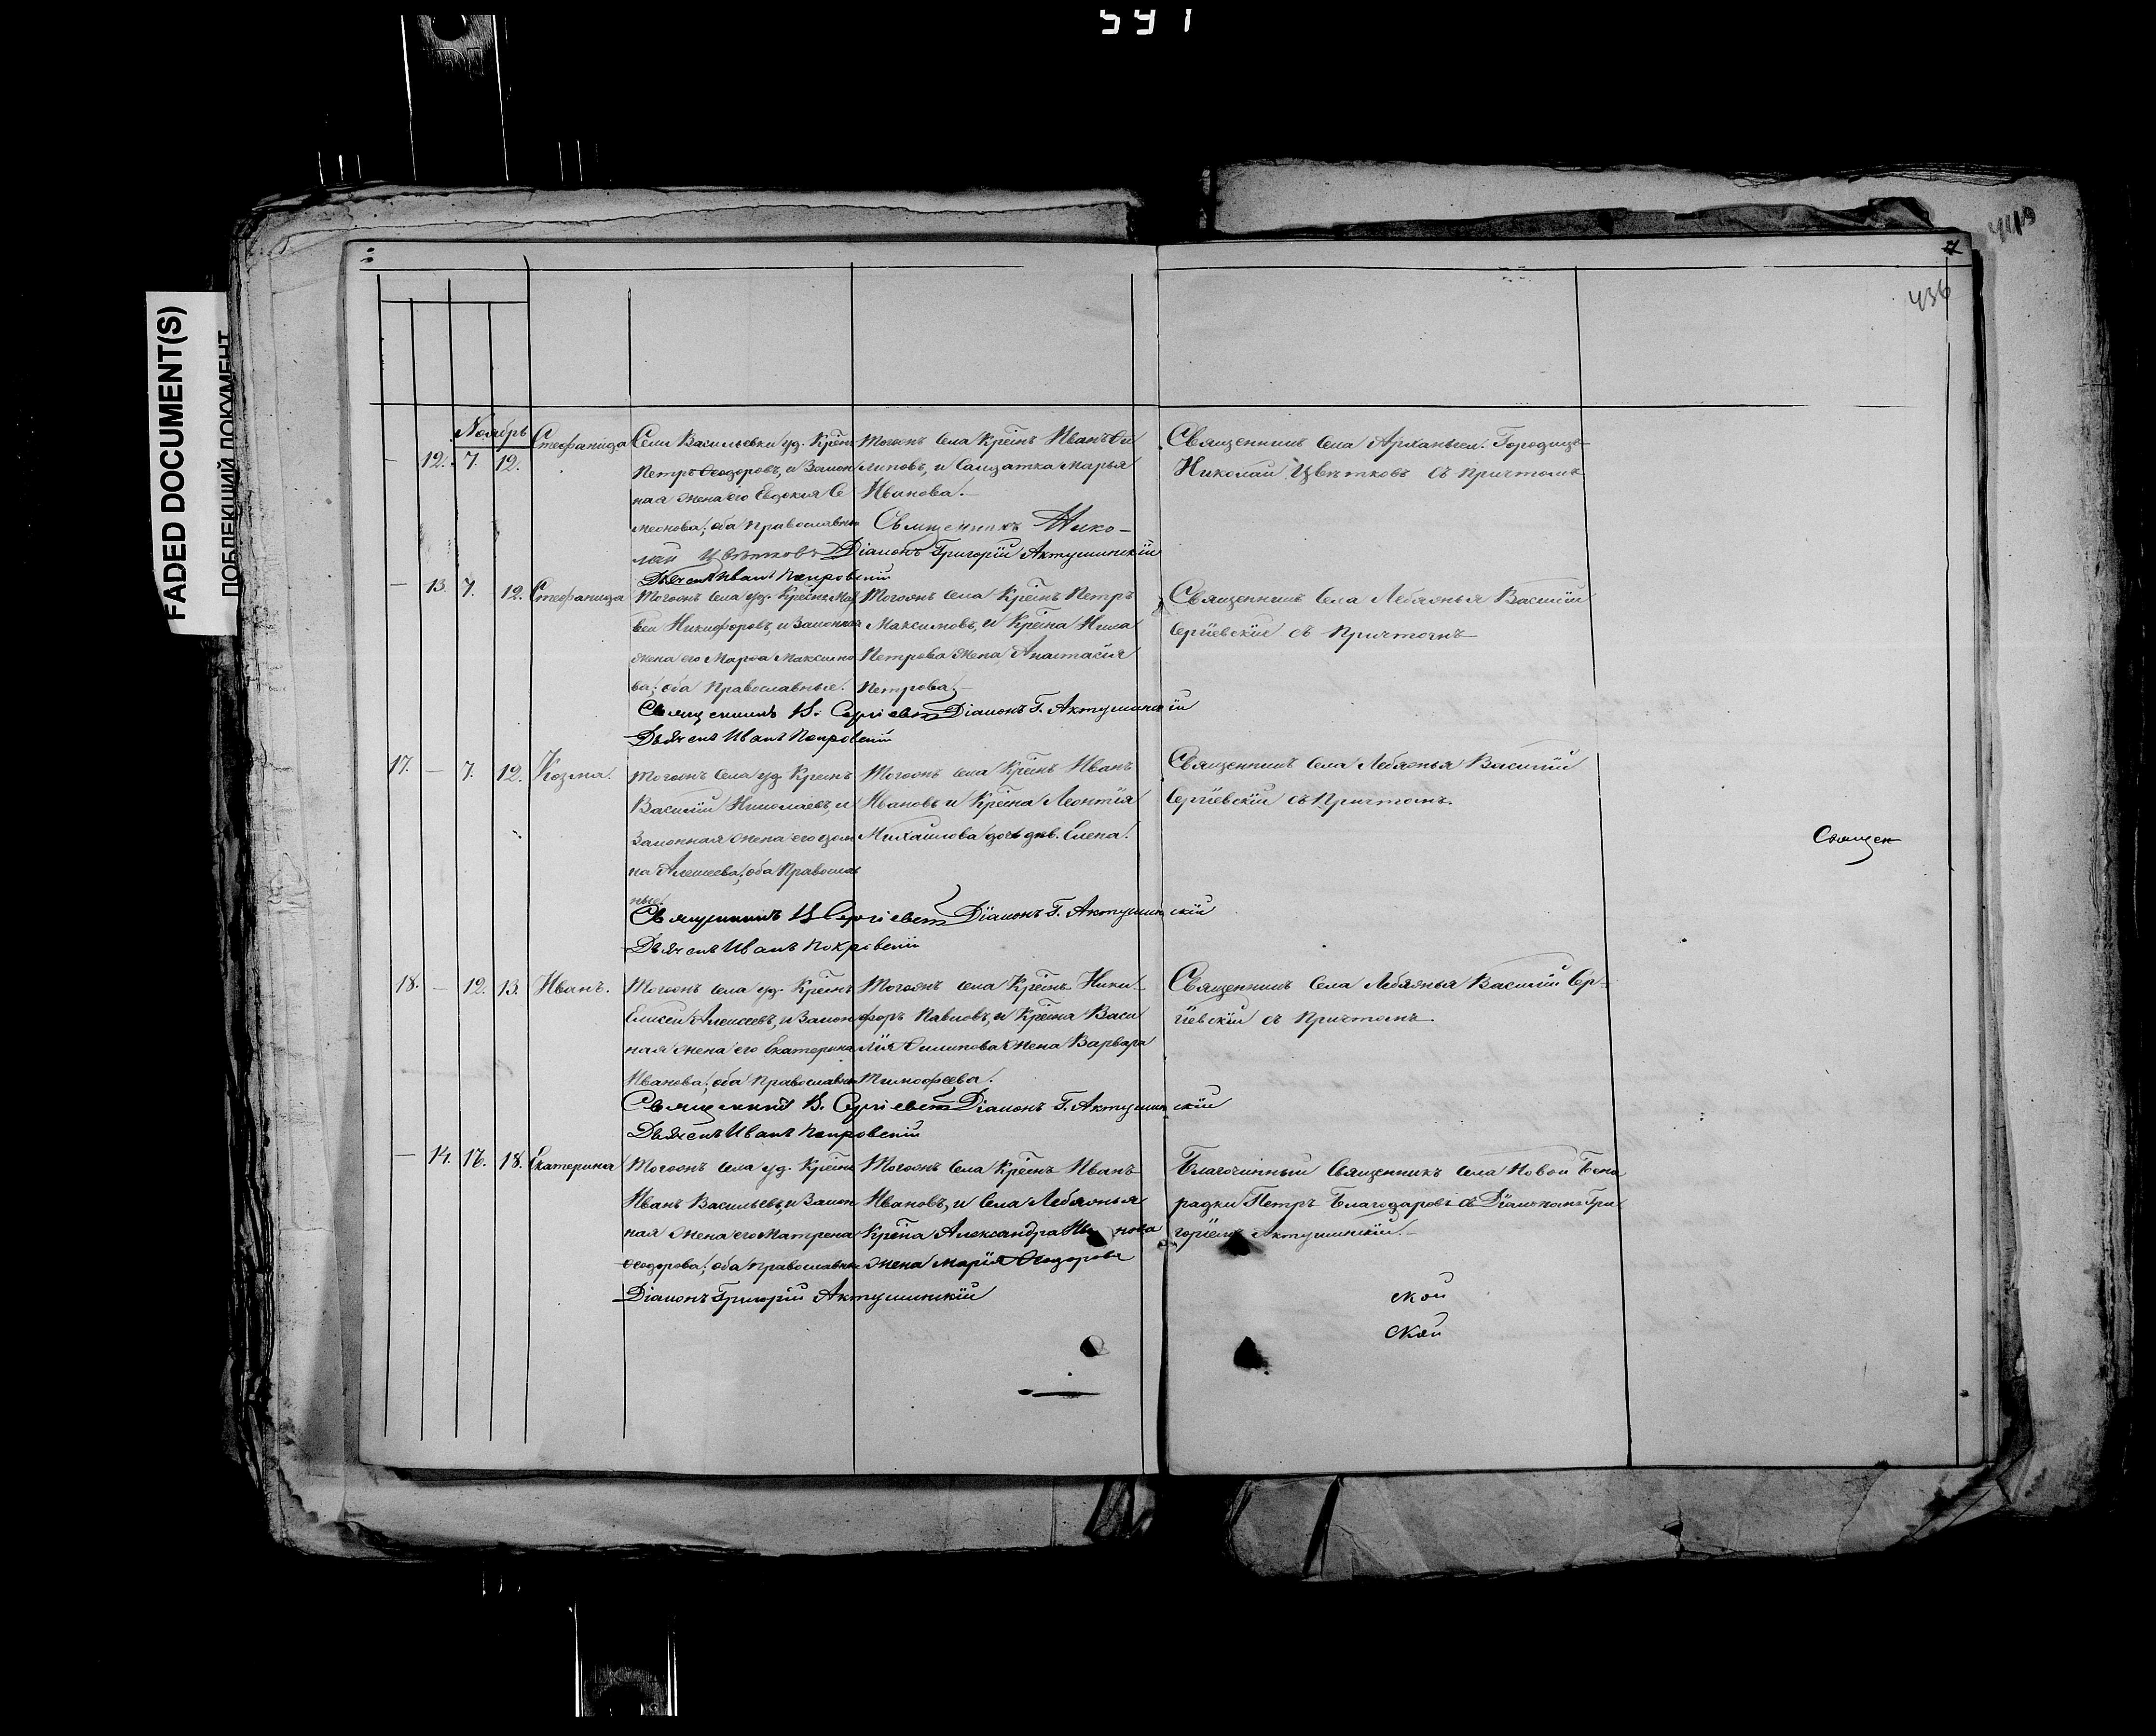 591
FADED DOCUMENT(S)
ПОБЛЕКШИЙ ДОКУМЕНТ
436
Ноябрь
12. 7. 12. Стефанида
Села Васильевки уд. Крінъ
Петръ Ѳеодоровъ, и Закон
ная жена его Евдокія Се
меонова; оба Православные
Тогожъ села Крінъ Иванъ Фи
липовъ, и Солдатка Марья
Иванова.
Священникъ Нико-
лай Цвѣтковъ Діаконъ Григорій Актушинскій
Дьячекъ Иванъ Покровскій
Священникъ села Архангел. Городищъ
Николай Цвѣтковъ съ Причтомъ
— 13. 7. 12. Стефанида
Тогожъ села уд. Крінъ Мат
вей Никифоровъ, и Законная
жена его Марѳа Максимо
ва; оба Православные.
Тогожъ села Крінъ Петръ
Максимовъ, и Крінка
Петрова жена Анастасія
Петрова.
Священникъ В. Сергіевскій Діаконъ Г. Актушинскій
Дьячекъ Иванъ Покровскій
Священникъ села Лебяжья Василій
Сергіевскій съ Причтомъ
17. — 7. 12. Козма.
Тогожъ села уд. Крінъ
Василій Николаевъ, и
Законная жена его Дом
на Алексеева; оба Православ
ные.
Тогожъ села Крінъ Иванъ
Ивановъ и Крінка Леонтія
Михайлова дочь дѣв. Елена.
Священникъ В. Сергіевскій Діаконъ Г. Актушинскій
Дьячекъ Иванъ Покровскій
Священникъ села Лебяжья Василій
Сергіевскій съ Причтомъ.
Священ
18. — 12. 13. Иванъ.
Тогожъ села уд. Крінъ
Елисей Алексеевъ, и Закон
ная жена его Екатерина
Иванова; оба Православные
Тогожъ села Крінъ Ники-
форъ Павловъ, и Крінка Васи
лія Филипова жена Варвара
Тимофеева.
Священникъ В. Сергіевскій Діаконъ Г. Актушинскій
Дьячекъ Иванъ Покровскій
Священникъ села Лебяжья Василій Сер-
гіевскій съ Причтомъ
— 14. 17. 18. Екатерина
Тогожъ села уд. Крінъ
Иванъ Васильевъ, и Закон
ная жена его Матрена
Ѳеодорова; оба Православные
Тогожъ села Крінъ Иванъ
Ивановъ, и села Лебяжья
Александра
жена Марія Ѳеодорова
Діаконъ Григорій Актушинскій
Благочинный Священникъ села Новой
Петръ Благодаровъ съ Діакономъ Гри
горіемъ Актушинскій.
ской
ской